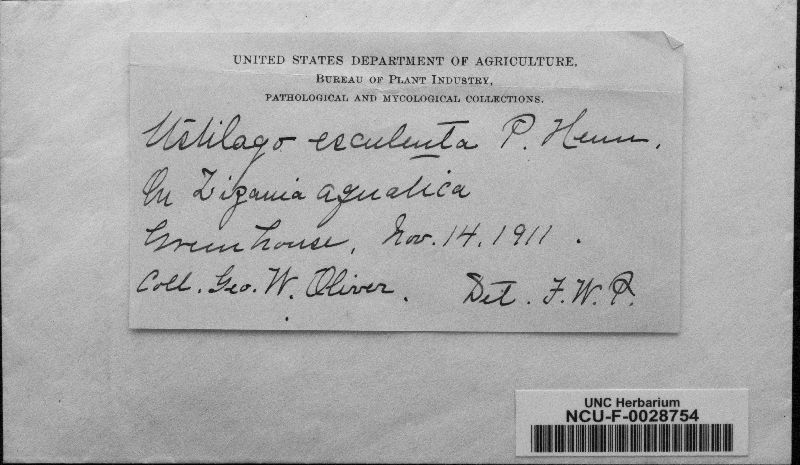 UNITED STATES DEPARTMENT OF AGRICULTURE,
BUREAU OF PLANT INDUSTRY,
PATHOLOGICAL AND MYCOLOGICAL COLLECTIONS.
Ustilago esculenta P. Henn.
On Zizania aquatica
Greenhouse, Nov. 14, 1911.
Coll. Geo. W. Oliver. Det. F. W. P.
UNC Herbarium
NCU-F-0028754